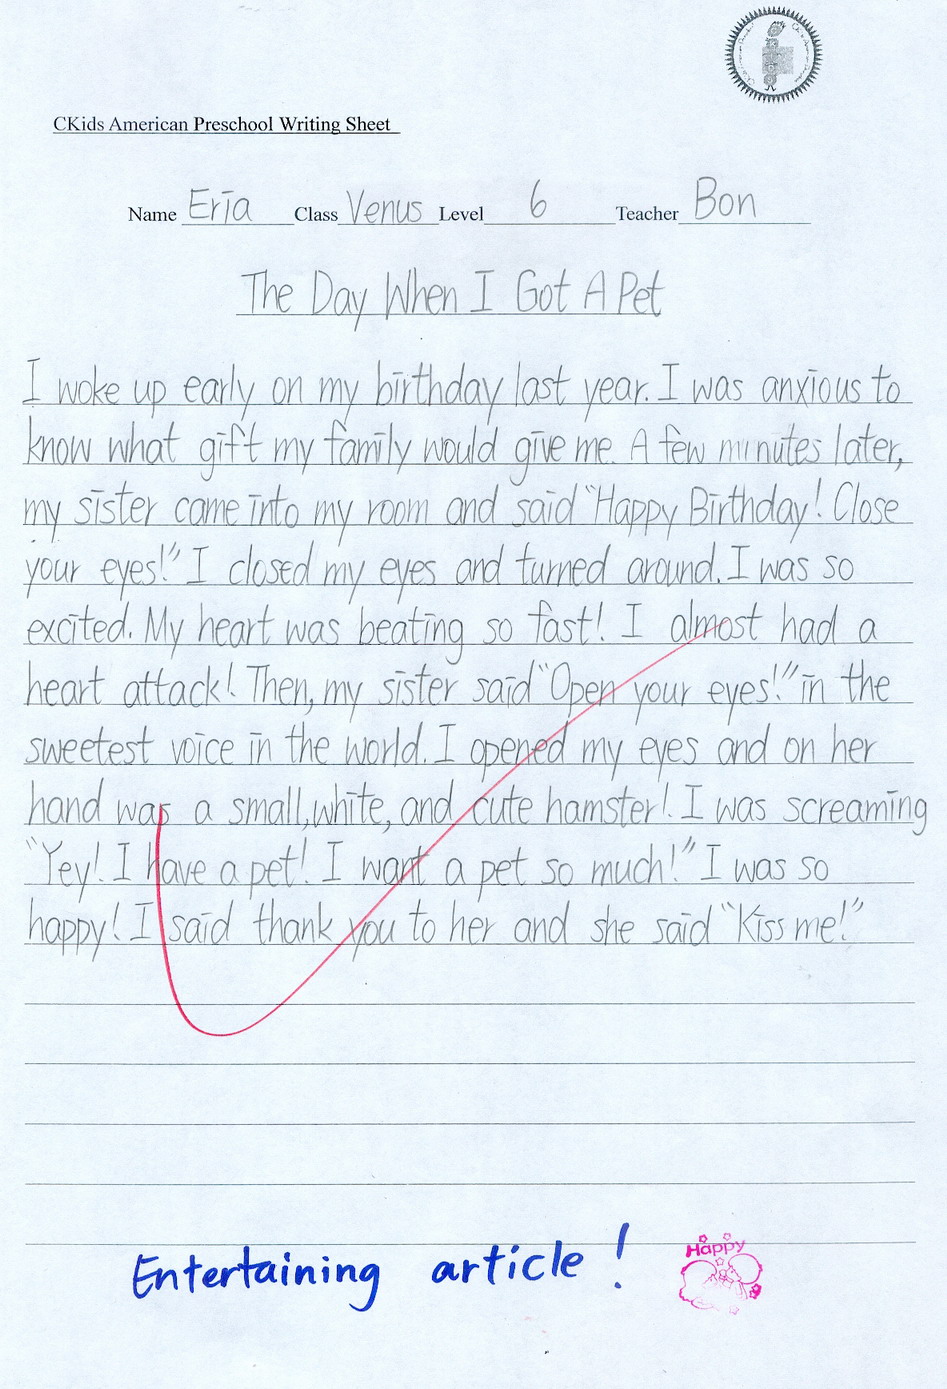 CKids American Preschool Writing Sheet
Name Eria Class Venus Level 6 Teacher Bon
The Day When I Got A Pet
I woke up early on my birthday last year. I was anxious to
know what gift my family would give me. A few minutes later,
my sister came into my room and said "Happy Birthday! Close
your eyes!" I closed my eyes and turned around. I was so
excited. My heart was beating so fast! I almost had a
heart attack! Then, my sister said "Open your eyes!" in the
sweetest voice in the world. I opened my eyes and on her
hand was a small, white, and cute hamster! I was screaming
"Yey! I have a pet! I want a pet so much!" I was so
happy! I said thank you to her and she said "Kiss me!"
Entertaining article!
Happy